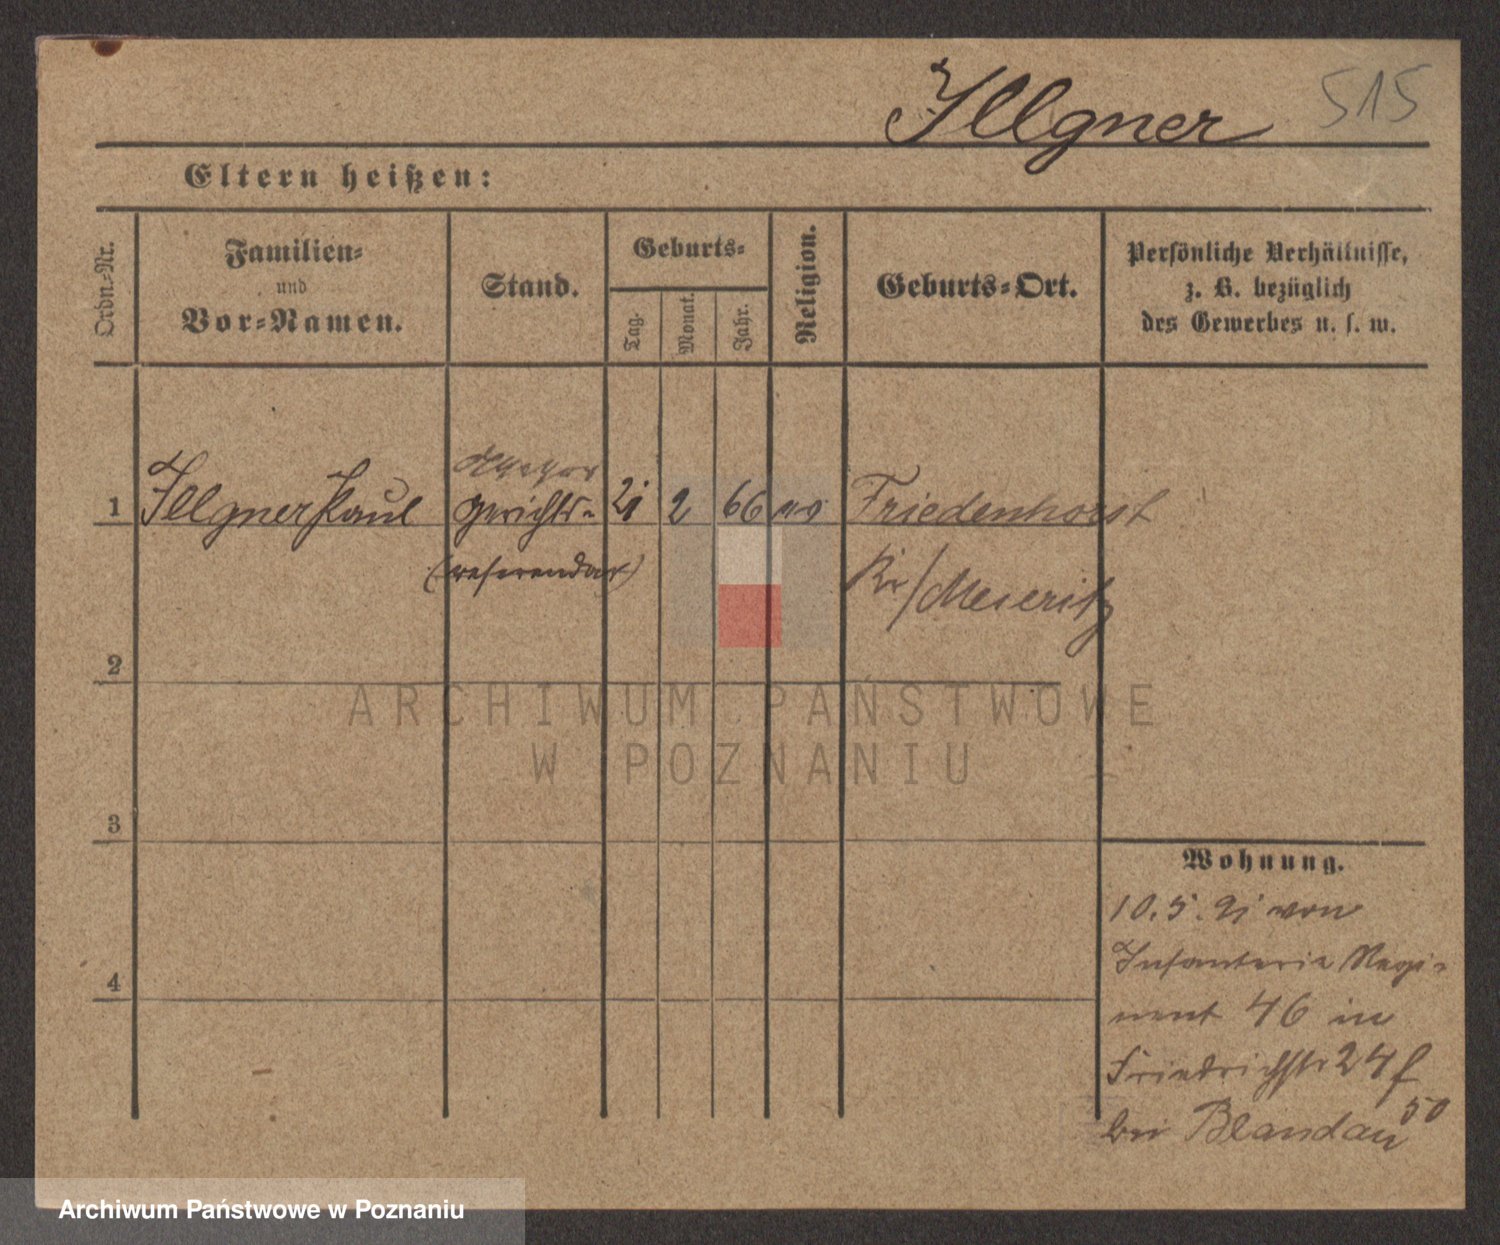 Illgner 515
Eltern heißen:
Ordn.-Nr.
Familien-
und
Vor-Namen.
Stand.
Geburts-
Tag.
Monat.
Jahr.
Religion.
Geburts-Ort.
Persönliche Verhältnisse,
z. B. bezüglich
des Gewerbes u. s. w.
1 Illgner Paul Gerichts- 21 2 66 ev Friedenhorst
(referendar) Kr/Meseritz
2
3
4
Wohnung.
10.5.91 von
Infanterie Regi-
ment 46 in
Friedrichstr 24 f
bei Blandau 50
ARCHIWUM PAŃSTWOWE
W POZNANIU
Archiwum Państwowe w Poznaniu